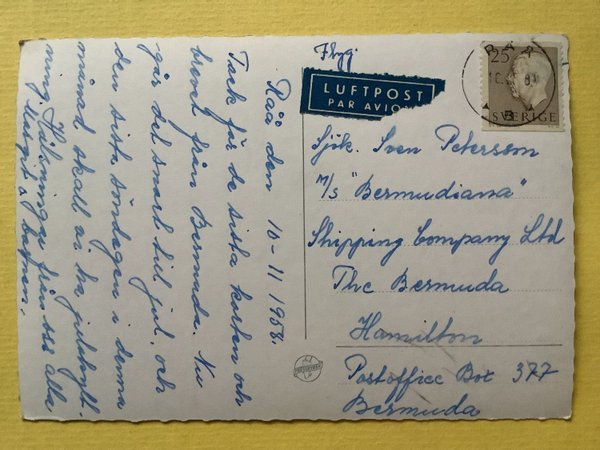 Flyg.
LUFTPOST
PAR AVION
RÅÅ
25
SVERIGE
B
Råå den 10-11 1958.
Tack för de sista korten och
brevet från Bermuda. Nu
går det snart till jul, och
den sista söndagen i denna
månad skall vi ha julskylt-
ning. Hälsningar från oss alla
Margit o barnen.
Sjök. Sven Petersson
M/s "Bermudiana"
Shipping Company Ltd
The Bermuda
Hamilton
Postoffice Box 377
Bermuda